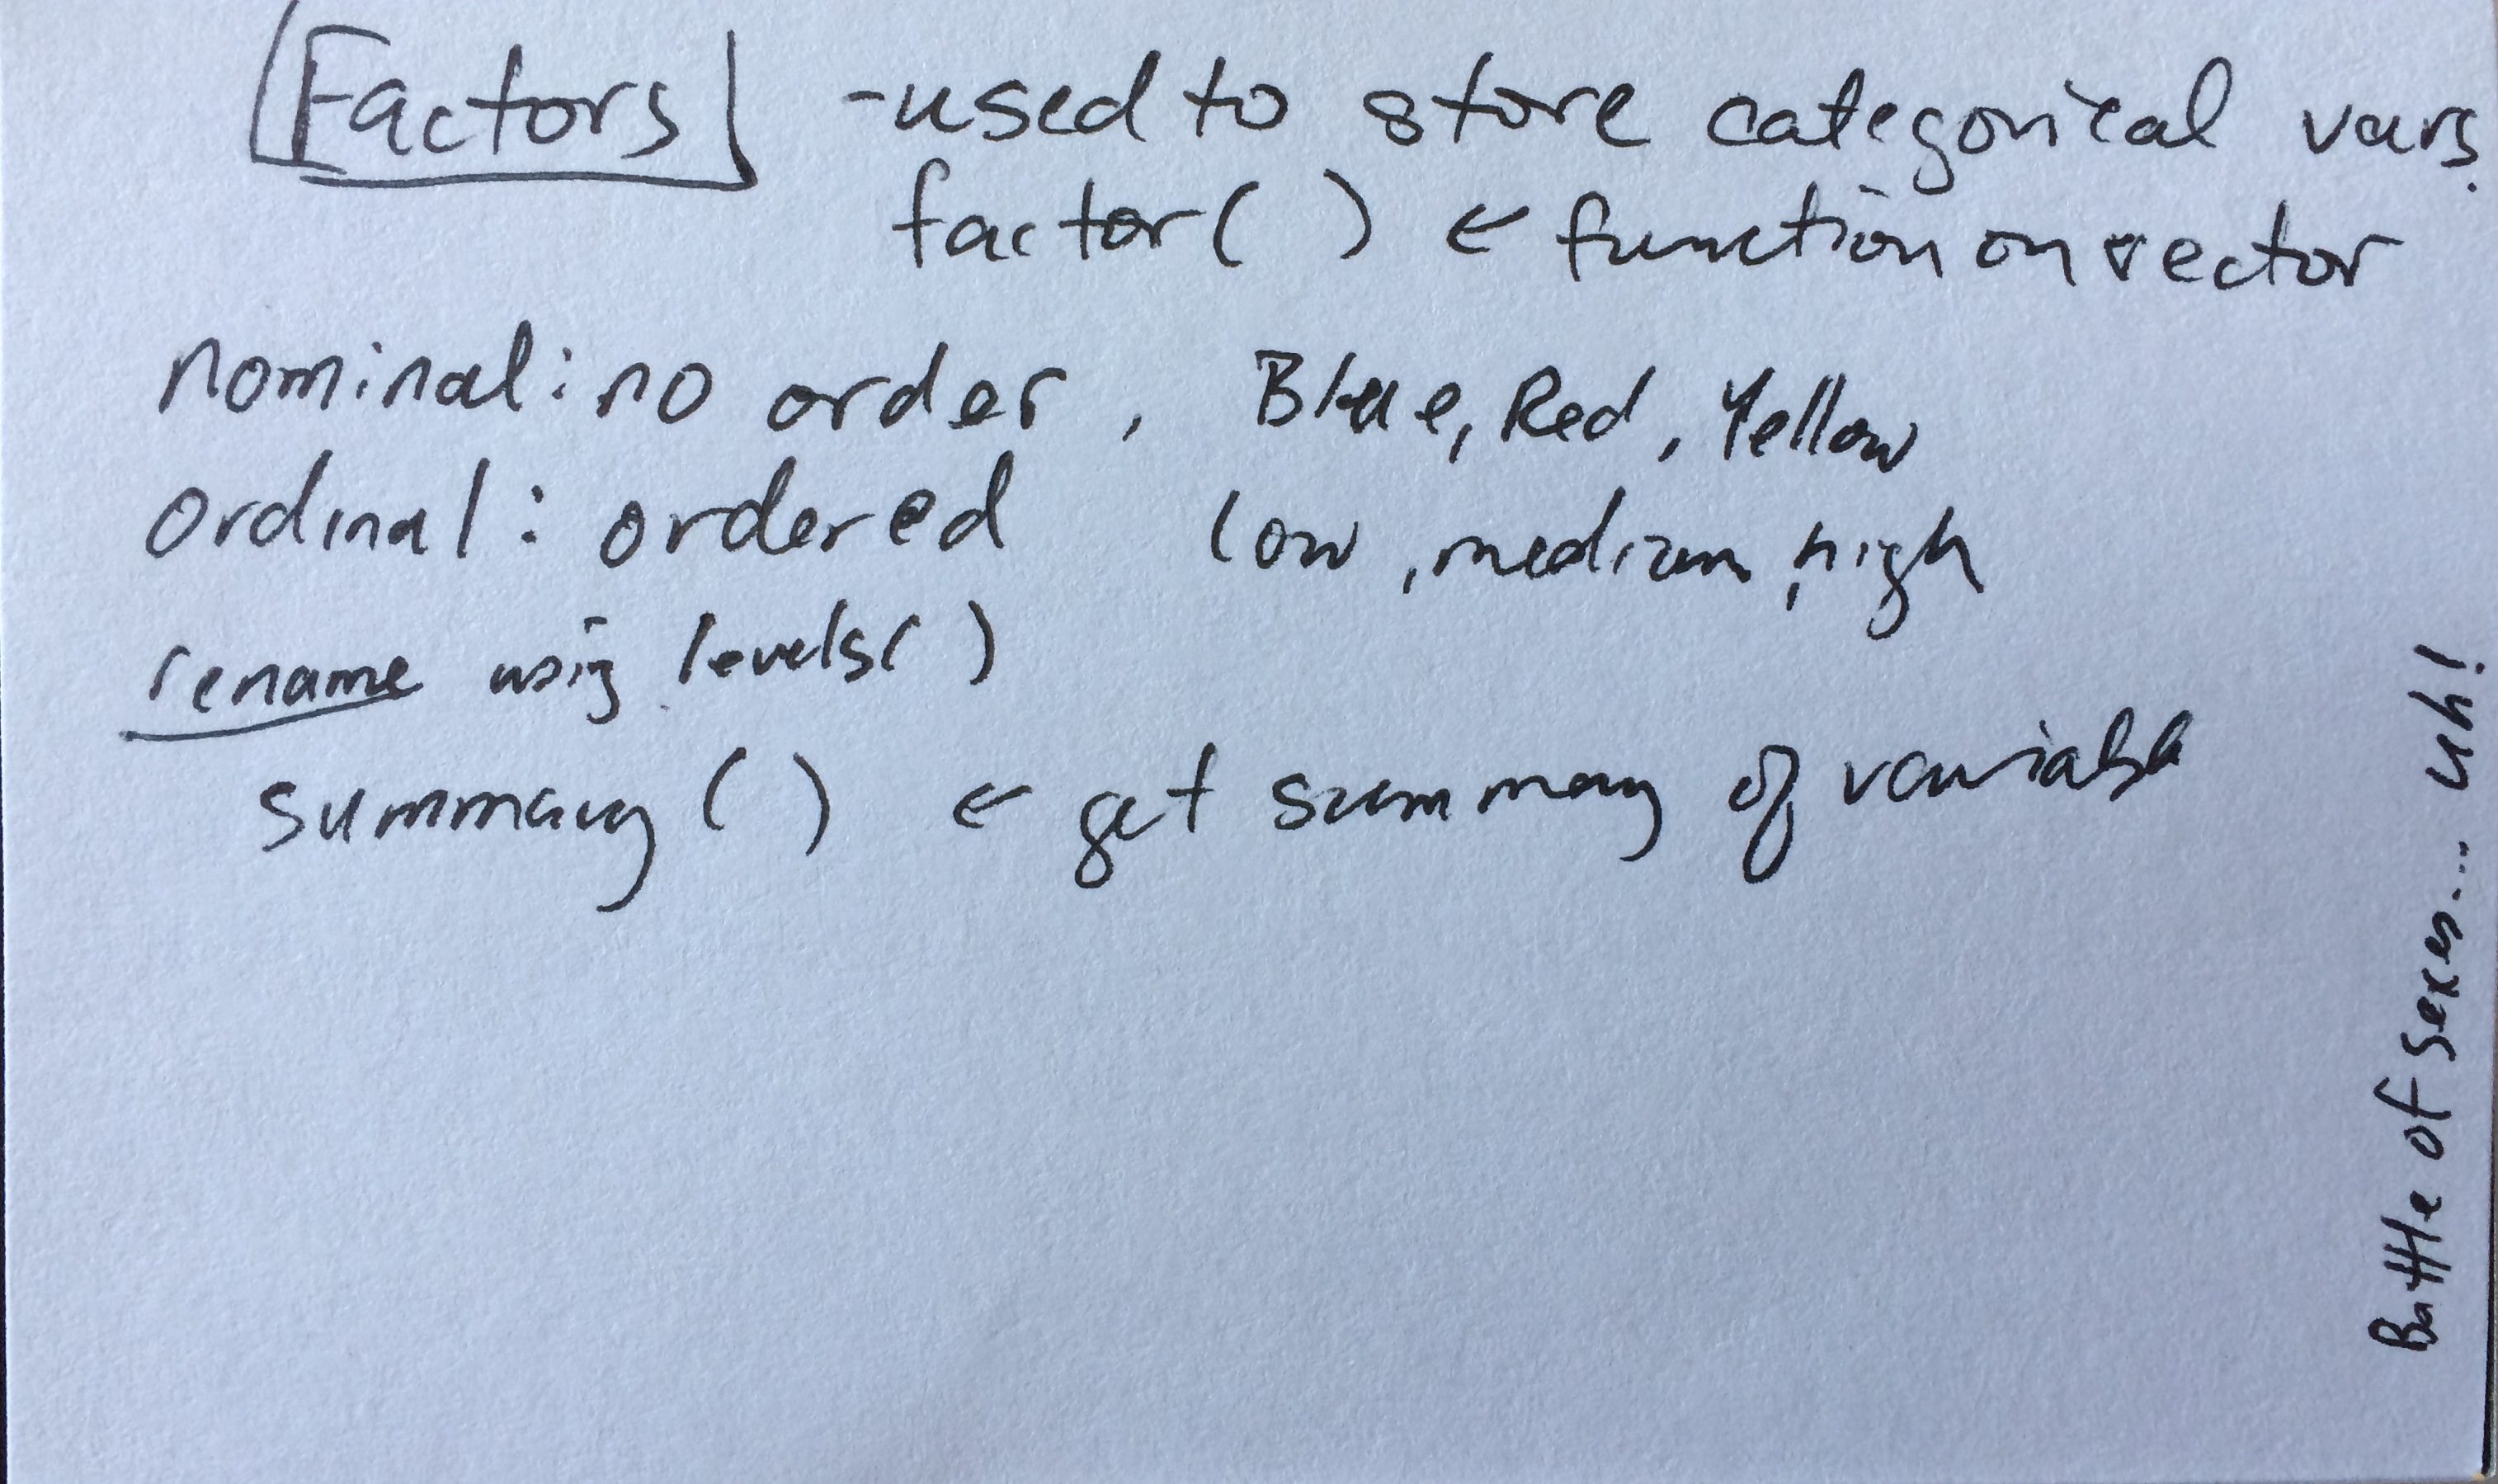 Factors - used to store categorical vars.
factor( ) ← function on vector
nominal: no order, Blue, Red, Yellow
ordinal: ordered low, medium, high
rename using levels( )
summary( ) ← get summary of variable
Battle of sexes... uh!